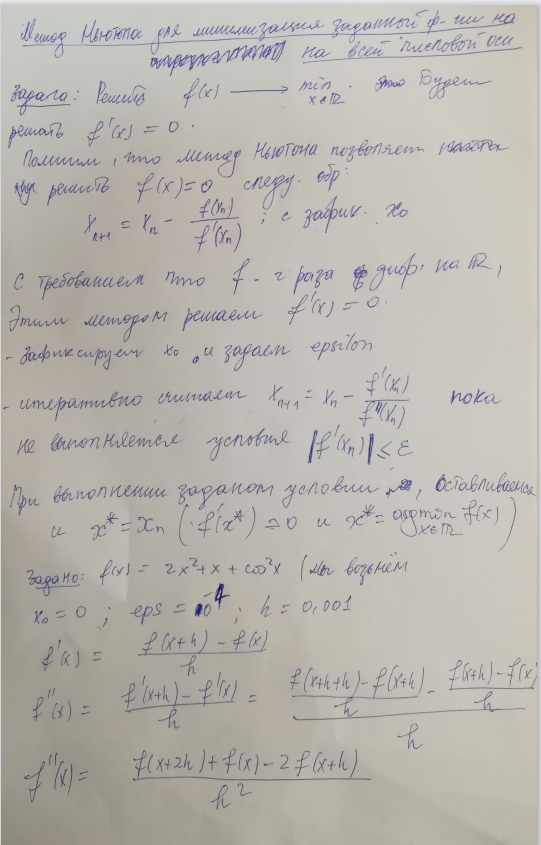 Метод Ньютона для минимизация заданный ф-ии на
на всей числовой оси
Задача: Решить f(x) ⟶ min x∈ℝ. Будем
решать f'(x) = 0.
Помним, что метод Ньютона позволяет
решить f(x)=0 следу. обр:
x_{n+1} = x_n - f(x_n)/f'(x_n) ; с зафик. x_0
С требованием что f - 2 раза диф. на ℝ,
Этим методом решаем f'(x) = 0.
- Зафиксируем x_0, и задаем epsilon
- итеративно считаем x_{n+1} = x_n - f'(x_n)/f''(x_n) пока
не выполняется условия |f'(x_n)| ≤ ε
При выполнении заданом условии, оставливаемся
и x* = x_n (f'(x*) = 0 и x* = argmin x∈ℝ f(x))
Задано: f(x) = 2x²+x + cos²x (мы возьнём
x_0 = 0 ; eps = 10^{-4} ; h = 0,001
f'(x) = (f(x+h) - f(x))/h
f''(x) = (f'(x+h) - f'(x))/h = ((f(x+h+h) - f(x+h))/h - (f(x+h) - f(x))/h)/h
f''(x) = (f(x+2h) + f(x) - 2f(x+h))/h²